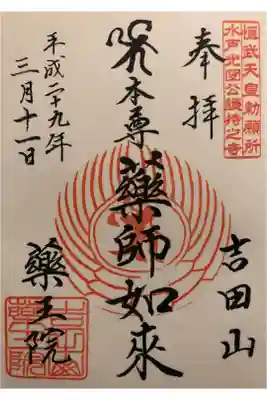 桓武天皇勅願所
水戸光圀公護持之寺
奉拝
吉田山
本尊
藥師如來
平成二十九年
三月十一日
藥王院